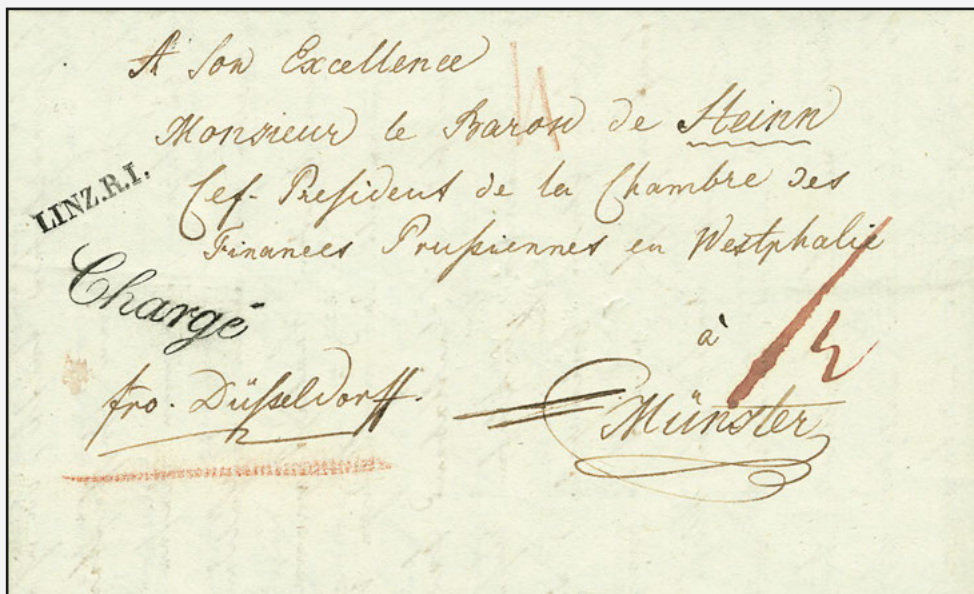 A Son Excellence
Monsieur le Baron de Steinn
Cef-President de la Chambre des
Finances Prussiennes en Westphalie
LINZ.R.I.
Chargé
à
fro. Düsseldorff.
Münster